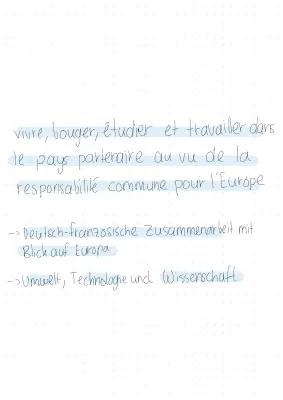 vivre, bouger, étudier et travailler dans
le pays partenaire au vu de la
responsabilité commune pour l'Europe
-> Deutsch-französische Zusammenarbeit mit
Blick auf Europa
-> Umwelt, Technologie und Wissenschaft